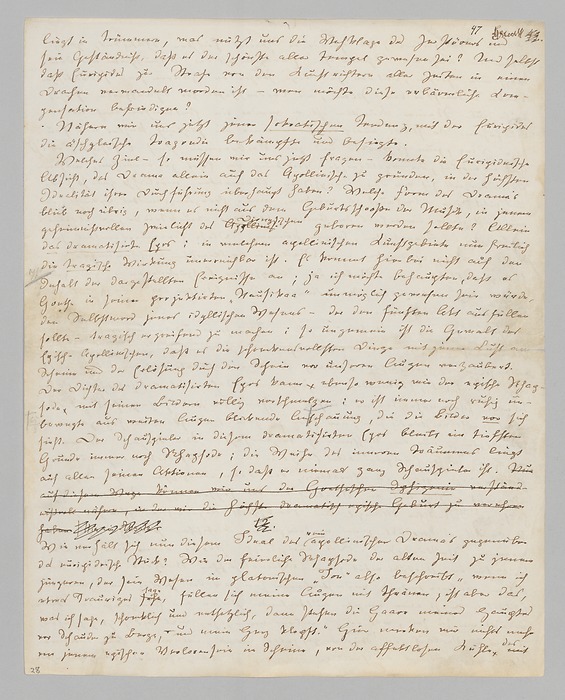 47
liegt in Trümmern, was nützt uns die Wehklage des Zerstörers und
sein Geständniß, daß es der schönste aller Tempel gewesen sei? Und selbst
daß Euripides zur Strafe von den Kunstrichtern aller Zeiten in einen
Drachen verwandelt worden ist – wen möchte diese erbärmliche Com-
pensation befriedigen?
Nähern wir uns jetzt jener sokratischen Tendenz, mit der Euripides
die äschyleische Tragödie bekämpfte und besiegte.
Welches Ziel – so müssen wir uns jetzt fragen – konnte die Euripideische
Absicht, das Drama allein auf das Apollinische zu gründen, in der höchsten
Idealität ihrer Durchführung überhaupt haben? Welche Form des Dramas
blieb noch übrig, wenn es nicht aus dem Geburtsschooße der Musik, in jenem
geheimnißvollen Zwielicht des Dionysischen geboren werden sollte? Allein
das dramatisirte Epos: in welchem apollinischen Kunstgebiete nun freilich
die tragische Wirkung unerreichbar ist. Es kommt hierbei nicht auf den
Inhalt der dargestellten Ereignisse an; ja ich möchte behaupten, daß es
Goethe in seiner projektirten „Nausikaa“ unmöglich gewesen sein würde,
den Selbstmord jenes idyllischen Wesens – der den fünften Akt ausfüllen
sollte – tragisch ergreifend zu machen; so ungemein ist die Gewalt des
Episch-Apollinischen, daß es die schreckensvollsten Dinge mit jener Lust am
Scheine und der Erlösung durch den Schein vor unseren Augen verzaubert.
Der Dichter des dramatisirten Epos kann ebenso wenig wie der epische Rhap-
sode mit seinen Bildern völlig verschmelzen: er ist immer noch ruhig un-
bewegte aus weiten Augen blickende Anschauung, die die Bilder vor sich
sieht. Der Schauspieler in diesem dramatisirten Epos bleibt im tiefsten
Grunde immer noch Rhapsode; die Weihe des inneren Träumens liegt
auf allen seinen Aktionen, so daß er niemals ganz Schauspieler ist. Nur
auf diesem Wege können wir uns der Goetheschen Iphigenie
Wie verhält sich nun diesem Ideal des apollinischen Dramas gegenüber
das euripideische Stück? Wie der feierliche Rhapsode der alten Zeit zu jenem
jüngeren, der sein Wesen im platonischen „Jon“ also beschreibt „wenn ich
etwas Trauriges sage, füllen sich meine Augen mit Thränen; ist aber das,
was ich sage, schrecklich und entsetzlich, dann stehen die Haare meines Hauptes
vor Schauder zu Berge, und mein Herz klopft.“ Hier merken wir nichts mehr
von jenem epischen Verlorensein im Scheine, von der affektlosen Kühle des
28